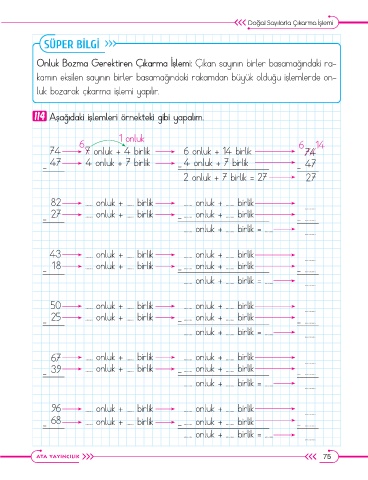 Doğal Sayılarla Çıkarma İşlemi
SÜPER BİLGİ
Onluk Bozma Gerektiren Çıkarma İşlemi: Çıkan sayının birler basamağındaki ra-
kamın eksilen sayının birler basamağındaki rakamdan büyük olduğu işlemlerde on-
luk bozarak çıkarma işlemi yapılır.
114 Aşağıdaki işlemleri örnekteki gibi yapalım.
6 1 onluk 6 14
74 7 onluk + 4 birlik 6 onluk + 14 birlik 74
- 47 4 onluk + 7 birlik - 4 onluk + 7 birlik - 47
2 onluk + 7 birlik = 27 27
82 ... onluk + ... birlik ... onluk + ... birlik ...
- 27 ... onluk + ... birlik - ... onluk + ... birlik - ...
... onluk + ... birlik = ... ...
43 ... onluk + ... birlik ... onluk + ... birlik ...
- 18 ... onluk + ... birlik - ... onluk + ... birlik - ...
... onluk + ... birlik = ... ...
50 ... onluk + ... birlik ... onluk + ... birlik ...
- 25 ... onluk + ... birlik - ... onluk + ... birlik - ...
... onluk + ... birlik = ... ...
67 ... onluk + ... birlik ... onluk + ... birlik ...
- 39 ... onluk + ... birlik - ... onluk + ... birlik - ...
... onluk + ... birlik = ... ...
96 ... onluk + ... birlik ... onluk + ... birlik ...
- 68 ... onluk + ... birlik - ... onluk + ... birlik - ...
... onluk + ... birlik = ... ...
ATA YAYINCILIK 75